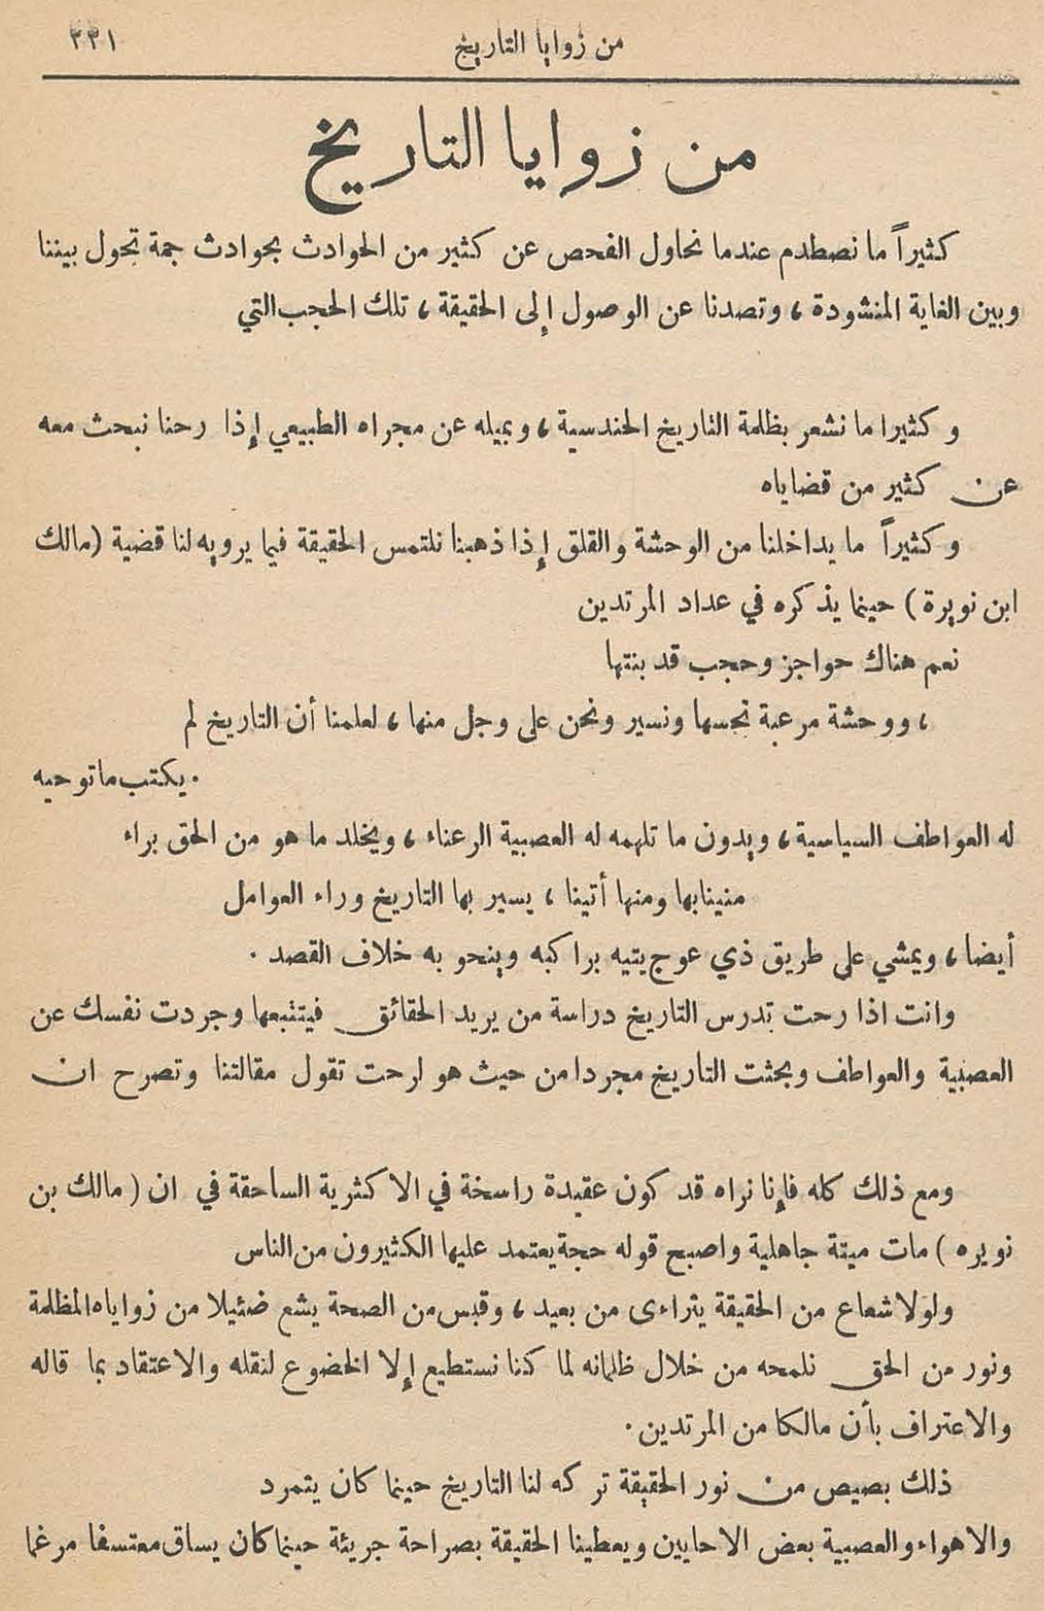 من زوايا التاريخ ٣٣١
من زوايا التاريخ
كثيراً ما نصطدم عندما نحاول الفحص عن كثير من الحوادث بحوادث جمة تحول بيننا
وبين الغاية المنشودة ، وتصدنا عن الوصول إلى الحقيقة ، تلك الحجب التي
و كثيرا ما نشعر بظلمة التاريخ الحندسية ، وبميله عن مجراه الطبيعي إذا رحنا نبحث معه
عن كثير من قضاياه
و كثيراً ما يداخلنا من الوحشة والقلق إذا ذهبنا نلتمس الحقيقة فيما يرويه لنا قضية (مالك
ابن نويرة ) حينما يذكره في عداد المرتدين
نعم هناك حواجز وحجب قد بنتها
، ووحشة مرعبة نحسها ونسير ونحن على وجل منها ، لعلمنا أن التاريخ لم
. يكتب ما توحيه
له العواطف السياسية ، ويدون ما تلهمه له العصبية الرعناء ، ويخلد ما هو من الحق براء
منينا بها ومنها أتينا ، يسير بها التاريخ وراء العوامل
أيضا ، ويمشي على طريق ذي عوج يتيه براكبه وينحو به خلاف القصد .
وانت اذا رحت تدرس التاريخ دراسة من يريد الحقائق فيتتبعها وجردت نفسك عن
العصبية والعواطف وبحثت التاريخ مجردا من حيث هو لرحت تقول مقالتنا وتصرح ان
ومع ذلك كله فإننا نراه قد كون عقيدة راسخة في الاكثرية الساحقة في ان ( مالك بن
نويره ) مات ميتة جاهلية واصبح قوله حجة يعتمد عليها الكثيرون من الناس
ولولا شعاع من الحقيقة يتراءى من بعيد ، وقبس من الصحة يشع ضئيلا من زواياه المظلمة
ونور من الحق نلمحه من خلال ظلماته لما كنا نستطيع إلا الخضوع لنقله والاعتقاد بما قاله
والاعتراف بأن مالكا من المرتدين .
ذلك بصيص من نور الحقيقة تركه لنا التاريخ حينما كان يتمرد
والاهواء والعصبية بعض الاحايين ويعطينا الحقيقة بصراحة جريئة حينما كان يساق معتسفا مرغما